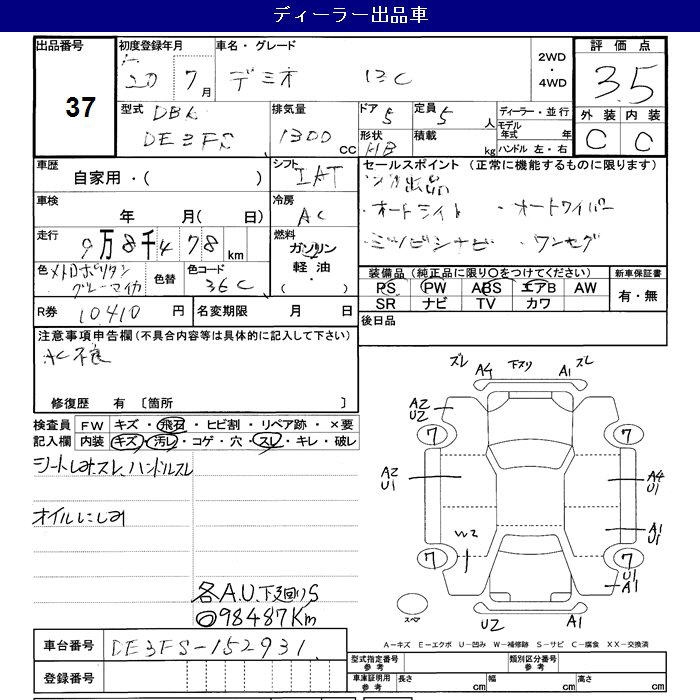 ディーラー出品車
出品番号
37
初度登録年月
20 7月
車名・グレード
デミオ 13C
2WD
・
4WD
評価点
3.5
外装 内装
C C
型式
DBA
DE3FS
排気量
1300 CC
ドア 5
形状 HB
定員 5人
積載 kg
ディーラー・並行
モデル年式 年
ハンドル 左・右
車歴
自家用・( )
車検
年 月( 日)
走行
9万8千478 km
色 メトロポリタン
グレーマイカ
色替
色コード
36C
シフト
IAT
冷房
AC
燃料
ガソリン
軽油・
セールスポイント (正常に機能するものに限ります)
・オートライト ・オートワイパー
・ミツビシナビ ・ワンセグ
装備品(純正品に限り○をつけてください)
PS PW ABS エアB AW
SR ナビ TV カワ
新車保証書
有・無
R券 10410 円
名変期限 月 日
後日品
注意事項申告欄(不具合内容等は具体的に記入して下さい)
修復歴 有 〔箇所 〕
検査員
記入欄
FW キズ・飛石・ヒビ割・リペア跡・×要
内装 キズ・汚レ・コゲ・穴・スレ・キレ・破レ
シートしみ、スレ、ハンドルスレ
オイルにじみ
各A.U.下廻りS
○98487Km
スレ A4 下スリ A1 スレ
A2
U2
7 7
A2
U1
A4
U1
A1
U1
W2
7 7
U1
A1
スペア
U2 A1
A-キズ E-エクボ U-凹み W-補修跡 S-サビ C-腐食 XX-交換済
車台番号 DE3FS-152931
登録番号
型式指定番号
参考
類別区分番号
参考
車庫証明用
参考
長さ cm 幅 cm 高さ cm